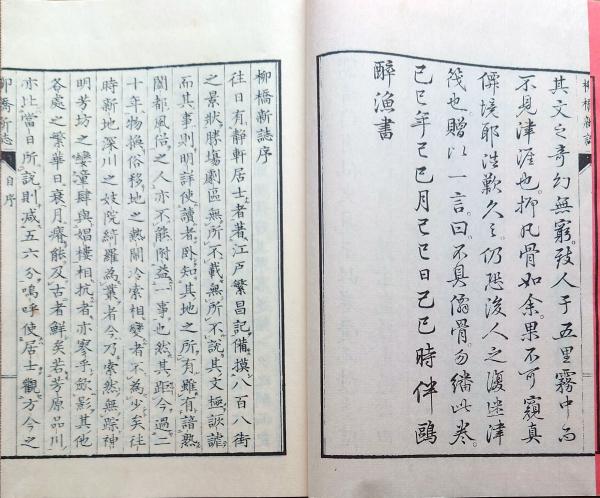 其文之奇幻無窮。致人于五里霧中而
不見津涯也。抑凡骨如余。果不可窺真
僊境耶。浩歎久之。仍恐後人之復迷津
筏也。贈以一言。曰。不具僊骨。勿繙此卷。
己巳年己巳月己巳日己巳時伴鷗
醉漁書
柳橋新誌
柳橋新誌序
往日有靜軒居士者。著江戶繁昌記。備摸八百八街
之景狀。勝場劇區無所不載無所不說。其文極詼謔
而其事則明詳。使讀者臥知其地之所有。雖有諳熟
闔都風俗之人亦不能附益一事也。然其距今過二
十年。物換俗移。地之熱鬧冷索相變者不為少矣。往
時新地深川之妓院綺羅為叢者。今乃索然無踪。神
明芳坊之孌童肆與娼樓相抗者。亦寥乎歛影。其他
各處之繁華日衰月瘠。能及古者鮮矣。若芳原品川
亦比當日所說則減五六分。嗚呼使居士觀方今之
柳橋新誌
自序